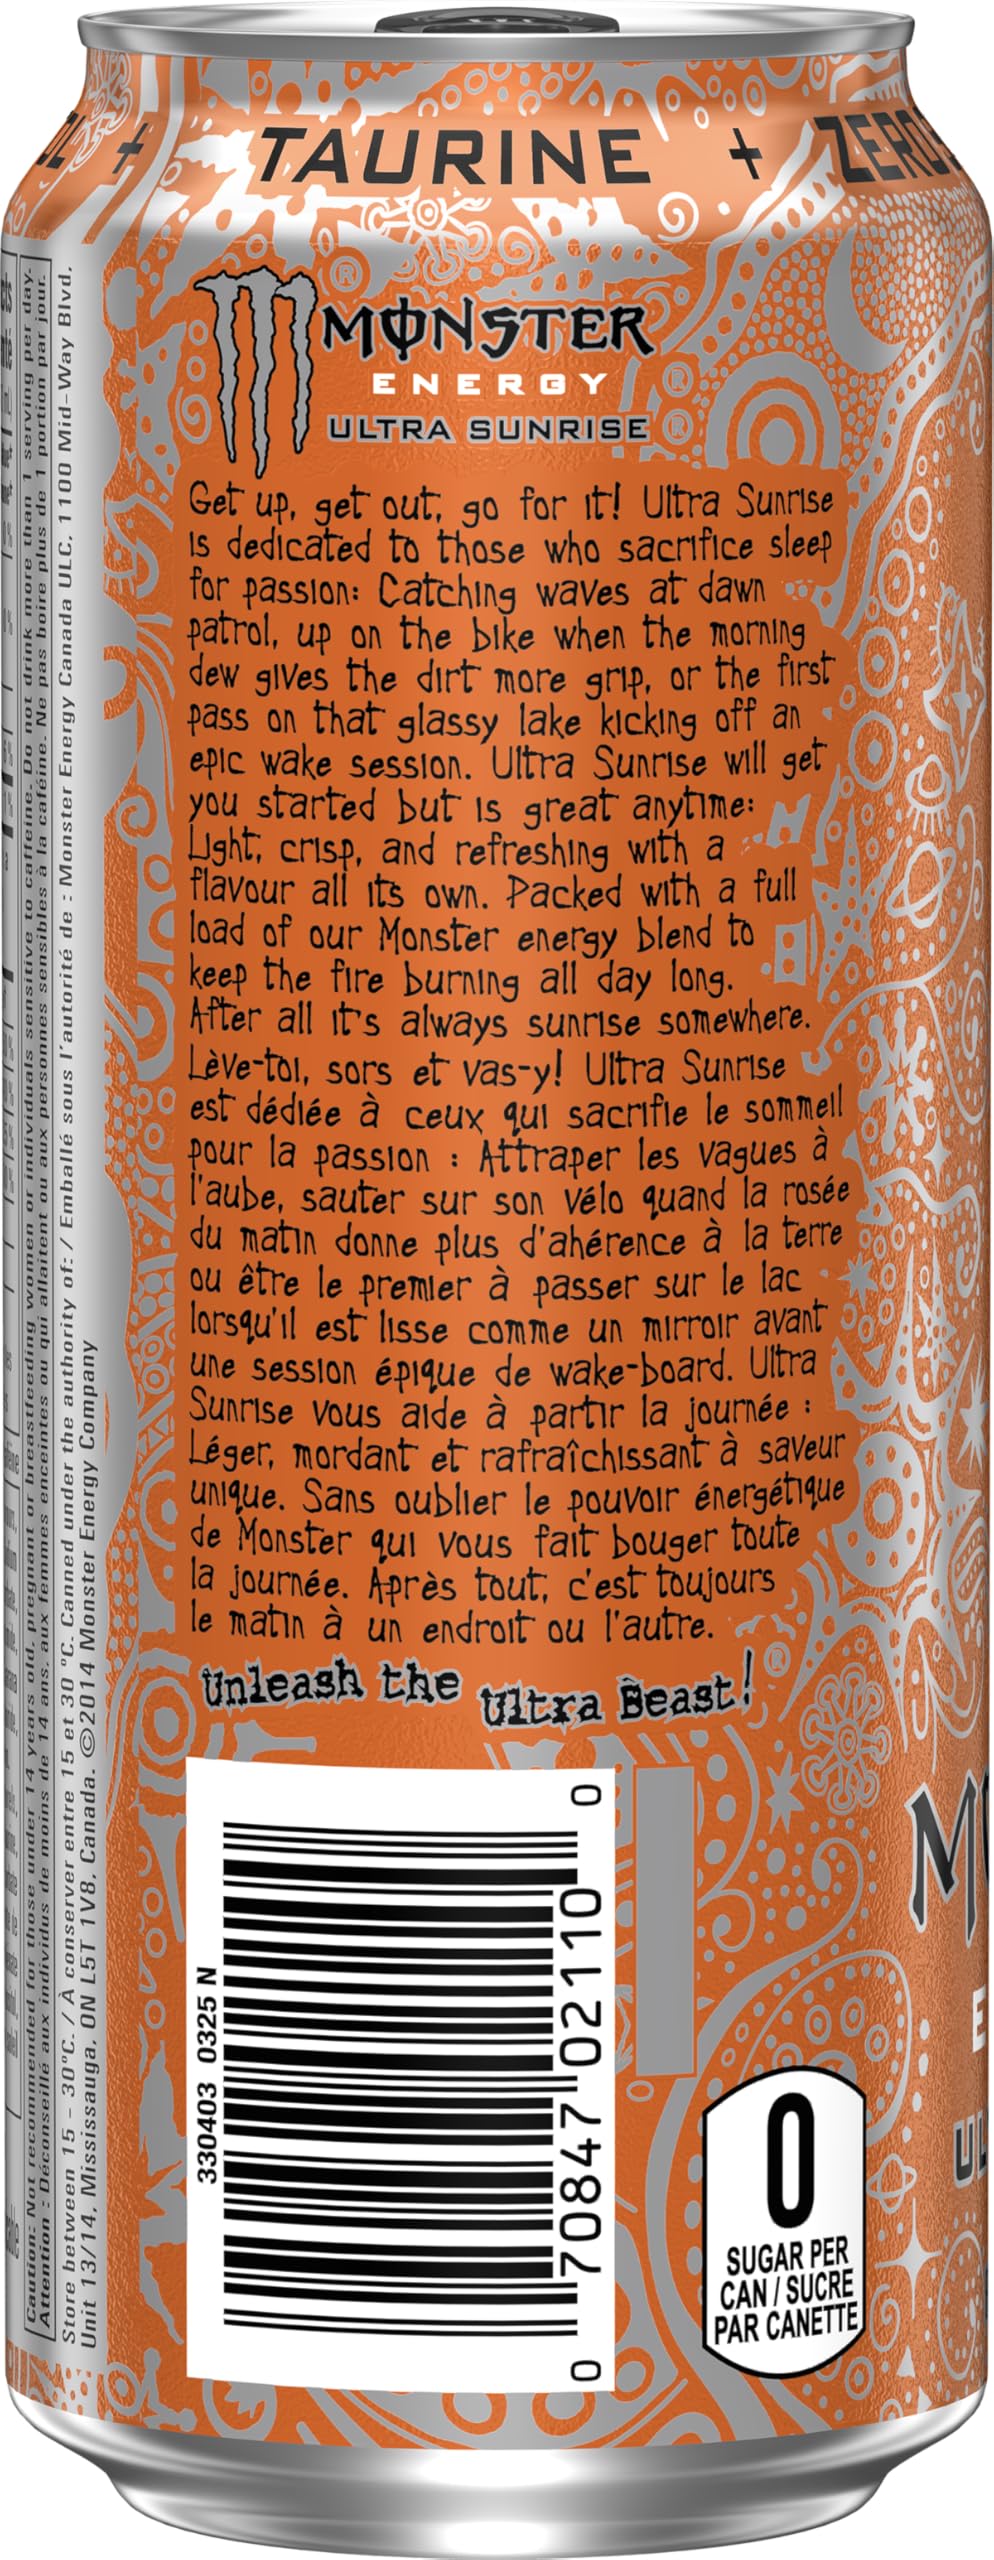 + TAURINE + ZERO
MONSTER
ENERGY
ULTRA SUNRISE
Get up, get out, go for it! Ultra Sunrise
is dedicated to those who sacrifice sleep
for passion: Catching waves at dawn
patrol, up on the bike when the morning
dew gives the dirt more grip, or the first
pass on that glassy lake kicking off an
epic wake session. Ultra Sunrise will get
you started but is great anytime:
Light, crisp, and refreshing with a
flavour all its own. Packed with a full
load of our Monster energy blend to
keep the fire burning all day long.
After all it's always sunrise somewhere.
Lève-toi, sors et vas-y! Ultra Sunrise
est dédiée à ceux qui sacrifie le sommeil
pour la passion : Attraper les vagues à
l'aube, sauter sur son vélo quand la rosée
du matin donne plus d'ahérence à la terre
ou être le premier à passer sur le lac
lorsqu'il est lisse comme un mirroir avant
une session épique de wake-board. Ultra
Sunrise vous aide à partir la journée :
Léger, mordant et rafraîchissant à saveur
unique. Sans oublier le pouvoir énergétique
de Monster qui vous fait bouger toute
la journée. Après tout, c'est toujours
le matin à un endroit ou l'autre.
Unleash the Ultra Beast!
330403 0325 N
0 70847 02110 0
0
SUGAR PER
CAN / SUCRE
PAR CANETTE
Caution: Not recommended for those under 14 years old, pregnant or breastfeeding women or individuals sensitive to caffeine. Do not drink more than 1 serving per day.
Attention : Déconseillé aux individus de moins de 14 ans, aux femmes enceintes ou qui allaitent ou aux personnes sensibles à la caféine. Ne pas boire plus de 1 portion par jour.
Store between 15 - 30°C. / À conserver entre 15 et 30 °C. Canned under the authority of: / Emballé sous l'autorité de : Monster Energy Canada ULC, 1100 Mid-Way Blvd,
Unit 13/14, Mississauga, ON L5T 1V8, Canada. ©2014 Monster Energy Company